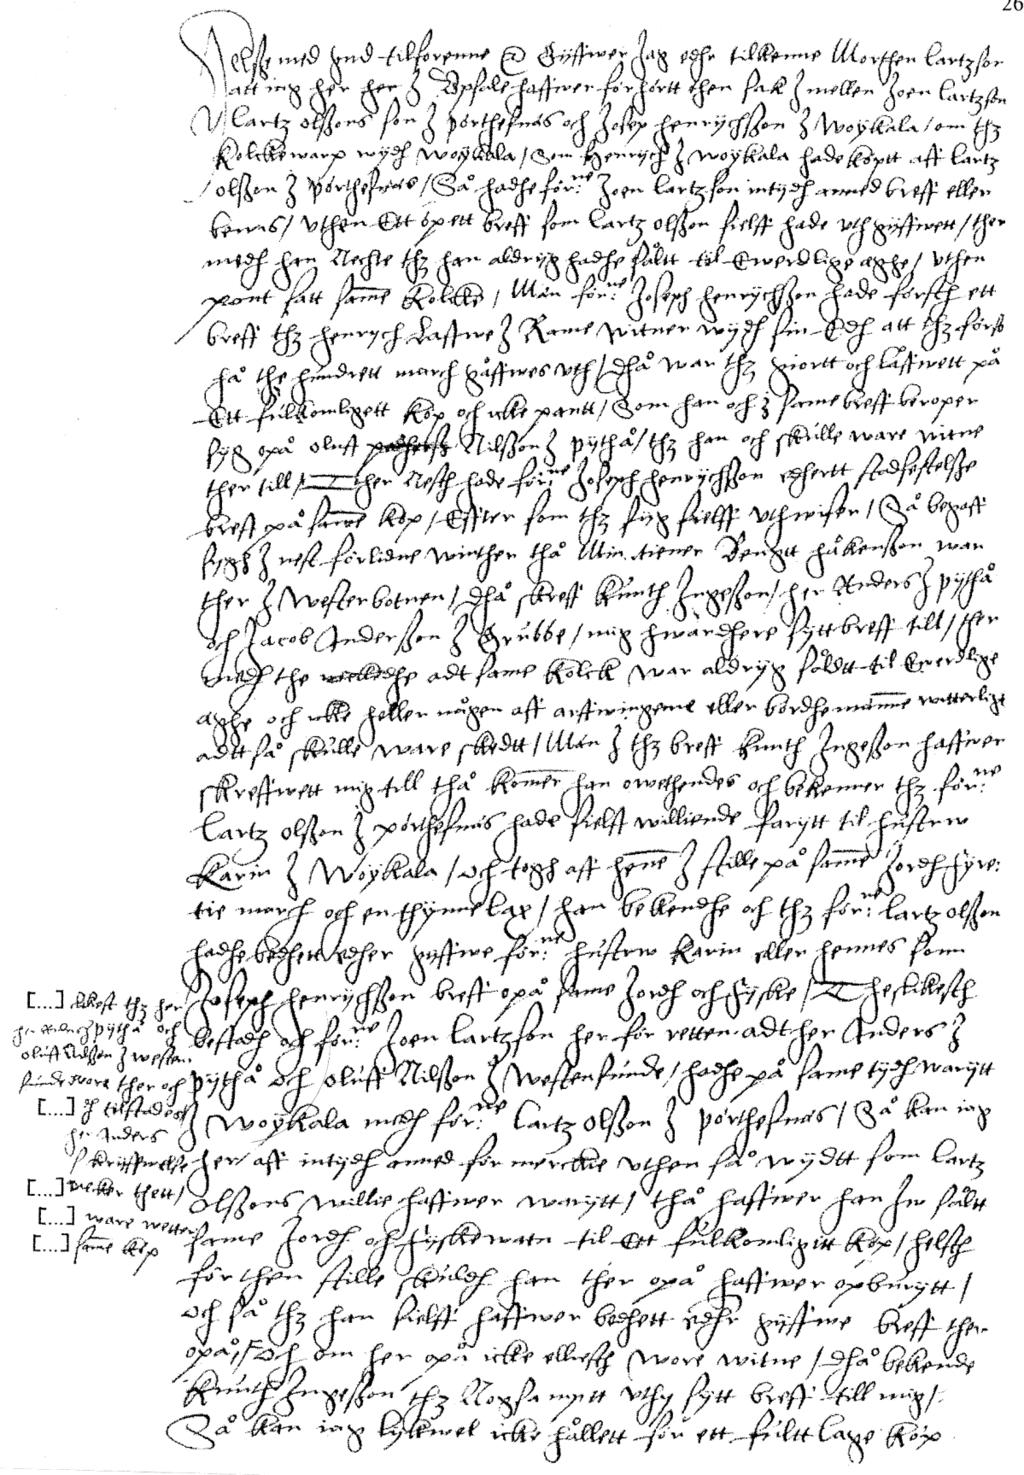 26
Helsse med gud tilforenne Gyffwer Jag edhr tilkenne Morthen Lartzson
att iag her her J Upsale haffwer forhörtt then sak J mellen Joen Lartzson
Lartz Olssons son J Porthesnäs och Josep Henrychsson J Woykala / om thz
Kolckewarp wydh Woykala / Som Henrych J Woykala hade köptt aff Lartz
Olsson J Porthesnäs / Så hadhe för:ne Joen Lartzson intydh anned breff eller
bewis / Uthen Ett öpett breff som Lartz Olsson sielff hade uth gyffwett / ther
medh han Nechte thz han aldryg hadhe såltt til Ewerdlige äghe / Uthen
pont satt samme Kolcke / Män för:ne Joseph Henrychsson hade forsth ett
breff thz Henrych Lasswe J Rame witner wydh sin Edh att thz förs
hå the hundrett march gåffwes uth / Dhå war thz giortt och låffwett på
Ett fulkomligett köp och icke pantt / Som han och J same breff beroper
syg opå Oluff Nilsson J Pythå / thz han och skulle ware witne
ther till / Ther Nesth hade för:ne Joseph Henrychsson edhertt stadfestelsse
breff på samme köp / Effter som thz syg sielff uthwiser / Så begaff
sygh J nest förlidne winther thå Min tiener Bengtt Håkensson war
ther J Westerbotnen / Dhå skreff Knuth Ingesson / her Anders J Pythå
och Jacob Andersson J Grubbe / mig hwardhere sytt breff till / ther
medh the adt same Kolck war aldryg såldtt til Ewerdlige
äghe och icke heller någen aff arffwingerne eller bördhemännne witterligt
adtt så skulle ware skedtt / Män J thz breff Knuth Ingesson haffwer
skreffwett mig till thå kommer han owethendes och bekenner thz för:ne
Lartz Olsson J Porthesnäs hade sielff williende farytt til hustrw
Karin J Woykala / och togh aff henne J stille på samme Jordh fyre:
tie march och en thynne lax / han bekendhe och thz för:ne Lartz Olsson
hadhe bedhett edher gyffwe för:ne hustrw Karin eller hennes sonn
Joseph Henrychsson breff opå same Jordh och fyske / Theslikesth
bestodh och för:ne Joen Lartzson her för retten adt her Anders J
Pythå och Oluff Nilsson J Westensunde / hadhe på same tydh warytt
J Woykala medh för:ne Lartz Olsson J Porthesnäs / Så kan iag
her aff intydh anned for merckie uthen så wydtt som Lartz
Olssons willie haffwer warytt / thå haffwer han Jw såltt
same Jordh och fyskewatn til Ett fulkomligitt köp / helsth
för then stille skuldh han ther opå haffwer opburytt /
och så thz han sielff haffwer bedhett edhr gyffwe breff ther
opå, / och om her opå icke elliesth wore witne / Dhå bekende
Knuth Ingesson thz Noghsamptt uthj sytt breff till mig /.
Så kan iag lykwel icke hållett för ett fultt lage köp
[...] likest thz her
her Anders J Pythå och
Oluff Nilsson J Westen
sunde wore ther och
[...] och tilstades
her Anders
skriffwelse
[...] wekker thett /
[...] ware wetter
[...] samme köp